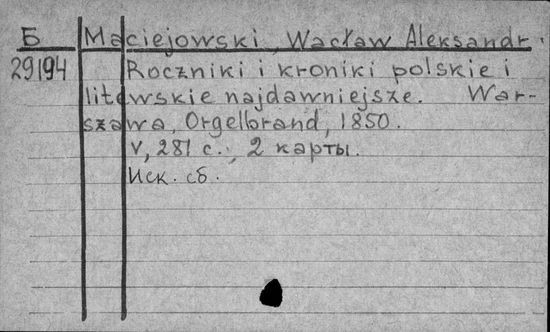 Б Maciejowski, Wacław Aleksandr.
29194 Roczniki i kroniki polskie i
litewskie najdawniejsze. War-
szawa, Orgelbrand, 1850.
V, 281 с., 2 карты.
Иск. сб.